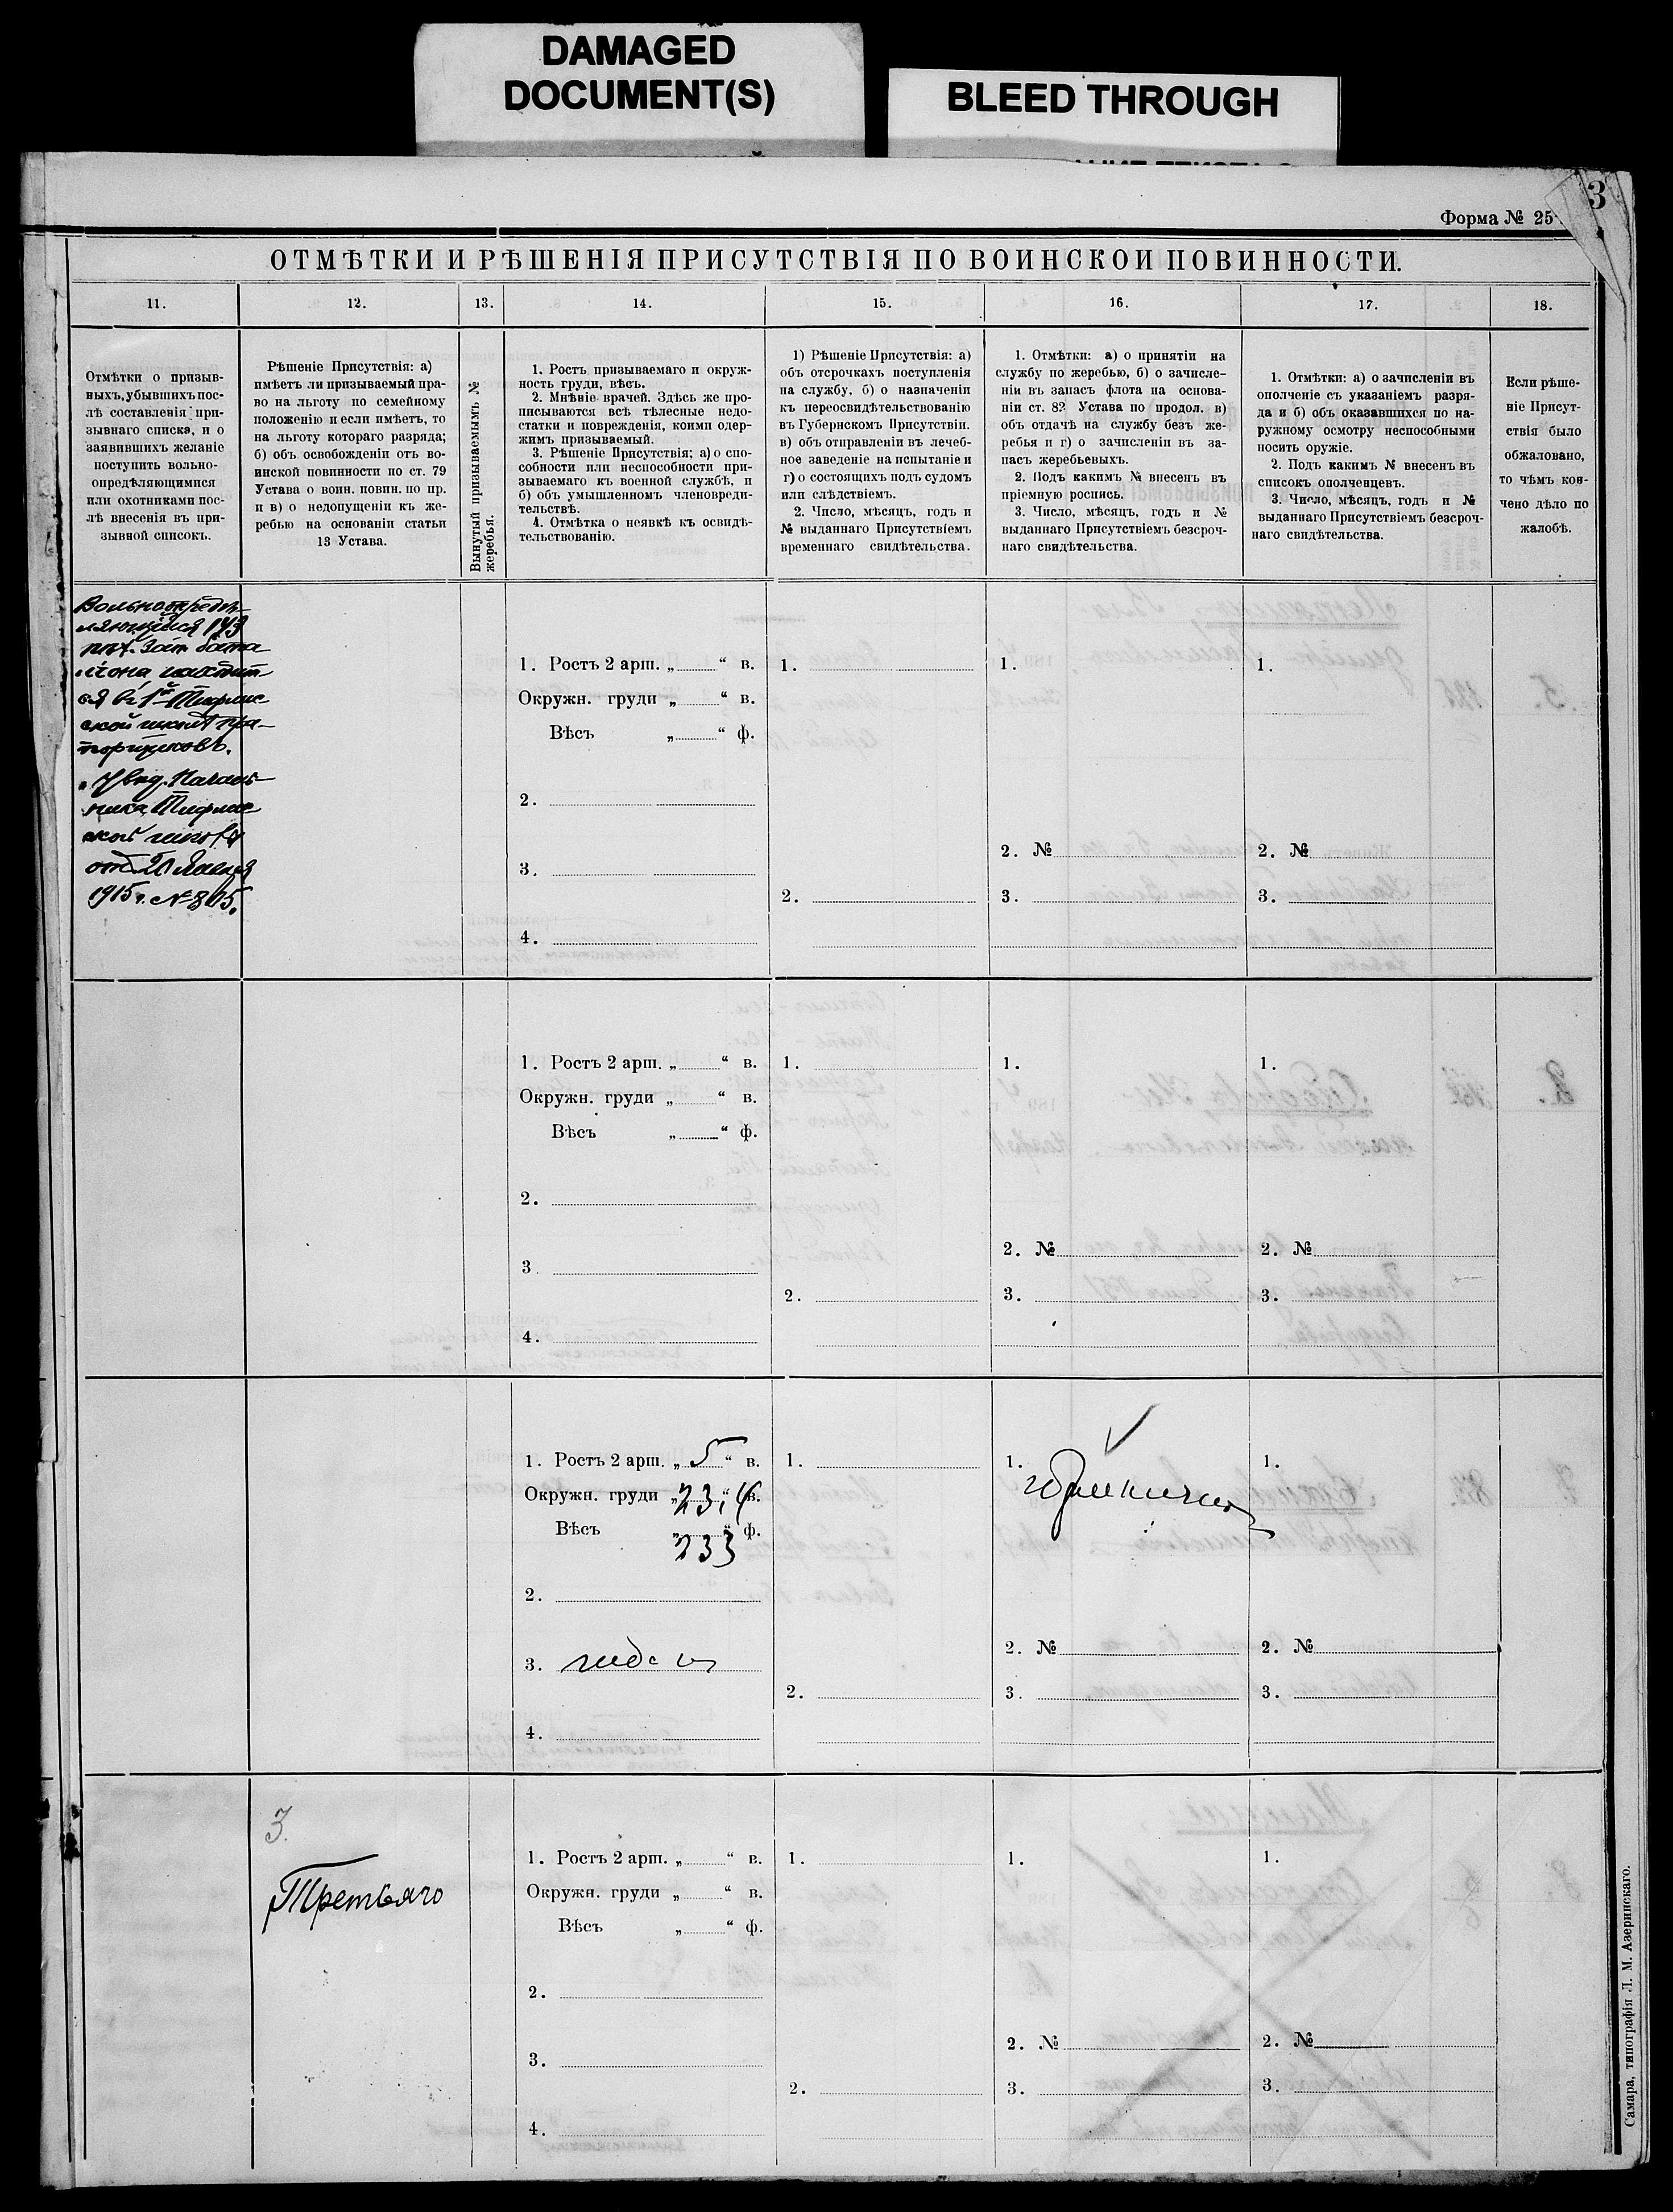 DAMAGED
DOCUMENT(S)
BLEED THROUGH
3
Форма № 25
ОТМѢТКИ И РѢШЕНІЯ ПРИСУТСТВІЯ ПО ВОИНСКОЙ ПОВИННОСТИ.
11.
12.
13.
14.
15.
16.
17.
18.
Отмѣтки о призыв-
ныхъ, убывшихъ пос-
лѣ составленія при-
зывнаго списка, и о
заявившихъ желаніе
поступить вольно-
опредѣляющимися
или охотниками пос-
лѣ внесенія въ при-
зывной списокъ.
Рѣшеніе Присутствія: а)
имѣетъ ли призываемый пра-
во на льготу по семейному
положенію и если имѣетъ, то
на льготу котораго разряда;
б) объ освобожденіи отъ во-
инской повинности по ст. 79
Устава о воин. повин. по пр.
и в) о недопущеніи къ же-
ребью на основаніи статьи
13 Устава.
Вынутый призываемымъ №
жеребья.
1. Ростъ призываемаго и окруж-
ность груди, вѣсъ.
2. Мнѣніе врачей. Здѣсь же про-
писываются всѣ тѣлесные недо-
статки и поврежденія, коими одер-
жимъ призываемый.
3. Рѣшеніе Присутствія; а) о спо-
собности или неспособности при-
зываемаго къ военной службѣ, и
б) объ умышленномъ членовреди-
тельствѣ.
4. Отмѣтка о неявкѣ къ освидѣ-
тельствованію.
1) Рѣшеніе Присутствія: а)
объ отсрочкахъ поступленія
на службу, б) о назначеніи
къ переосвидѣтельствованію
въ Губернскомъ Присутствіи.
в) объ отправленіи въ лечеб-
ное заведеніе на испытаніе и
г) о состоящихъ подъ судомъ
или слѣдствіемъ.
2. Число, мѣсяцъ, годъ и
№ выданнаго Присутствіемъ
временнаго свидѣтельства.
1. Отмѣтки: а) о принятіи на
службу по жеребью, б) о зачисле-
ніи въ запасъ флота на основа-
ніи ст. 82 Устава по продол. в)
объ отдачѣ на службу безъ же-
ребья и г) о зачисленіи въ за-
пасъ жеребьевыхъ.
2. Подъ какимъ № внесенъ въ
пріемную роспись.
3. Число, мѣсяцъ, годъ и №
выданнаго Присутствіемъ безсроч-
наго свидѣтельства.
1. Отмѣтки: а) о зачисленіи въ
ополченіе съ указаніемъ разря-
да и б) объ оказавшихся по на-
ружному осмотру неспособными
носить оружіе.
2. Подъ какимъ № внесенъ въ
списокъ ополченцевъ.
3. Число, мѣсяцъ, годъ и №
выданнаго Присутствіемъ безсроч-
наго свидѣтельства.
Если рѣше-
ніе Присут-
ствія было
обжаловано,
то чѣмъ кон-
чено дѣло по
жалобѣ.
Вольноопредѣ-
ляющійся 143
пѣх. зап. бата-
ліона, находит-
ся въ 1й Тифлис-
ской школѣ пра-
порщиковъ.
Увѣд. Началь-
ника Тифлис-
ской школы
от 20 Января
1915 г. № 805.
1. Ростъ 2 арш. „ “ в.
Окружн. груди „ “ в.
Вѣсъ „ “ ф.
2.
3.
4.
1.
2.
1.
2. №
3.
1.
2. №
3.
1. Ростъ 2 арш. „ “ в.
Окружн. груди „ “ в.
Вѣсъ „ “ ф.
2.
3.
4.
1.
2.
1.
2. №
3.
1.
2. №
3.
1. Ростъ 2 арш. „ 5 “ в.
Окружн. груди „ 23,4 “ в.
Вѣсъ „ 233 “ ф.
2.
3. годенъ
4.
1.
2.
1.
2. №
3.
1.
2. №
3.
3.
Третьяго
1. Ростъ 2 арш. „ “ в.
Окружн. груди „ “ в.
Вѣсъ „ “ ф.
2.
3.
4.
1.
2.
1.
2. №
3.
1.
2. №
3.
Самара, типографія Л. М. Азеринскаго.